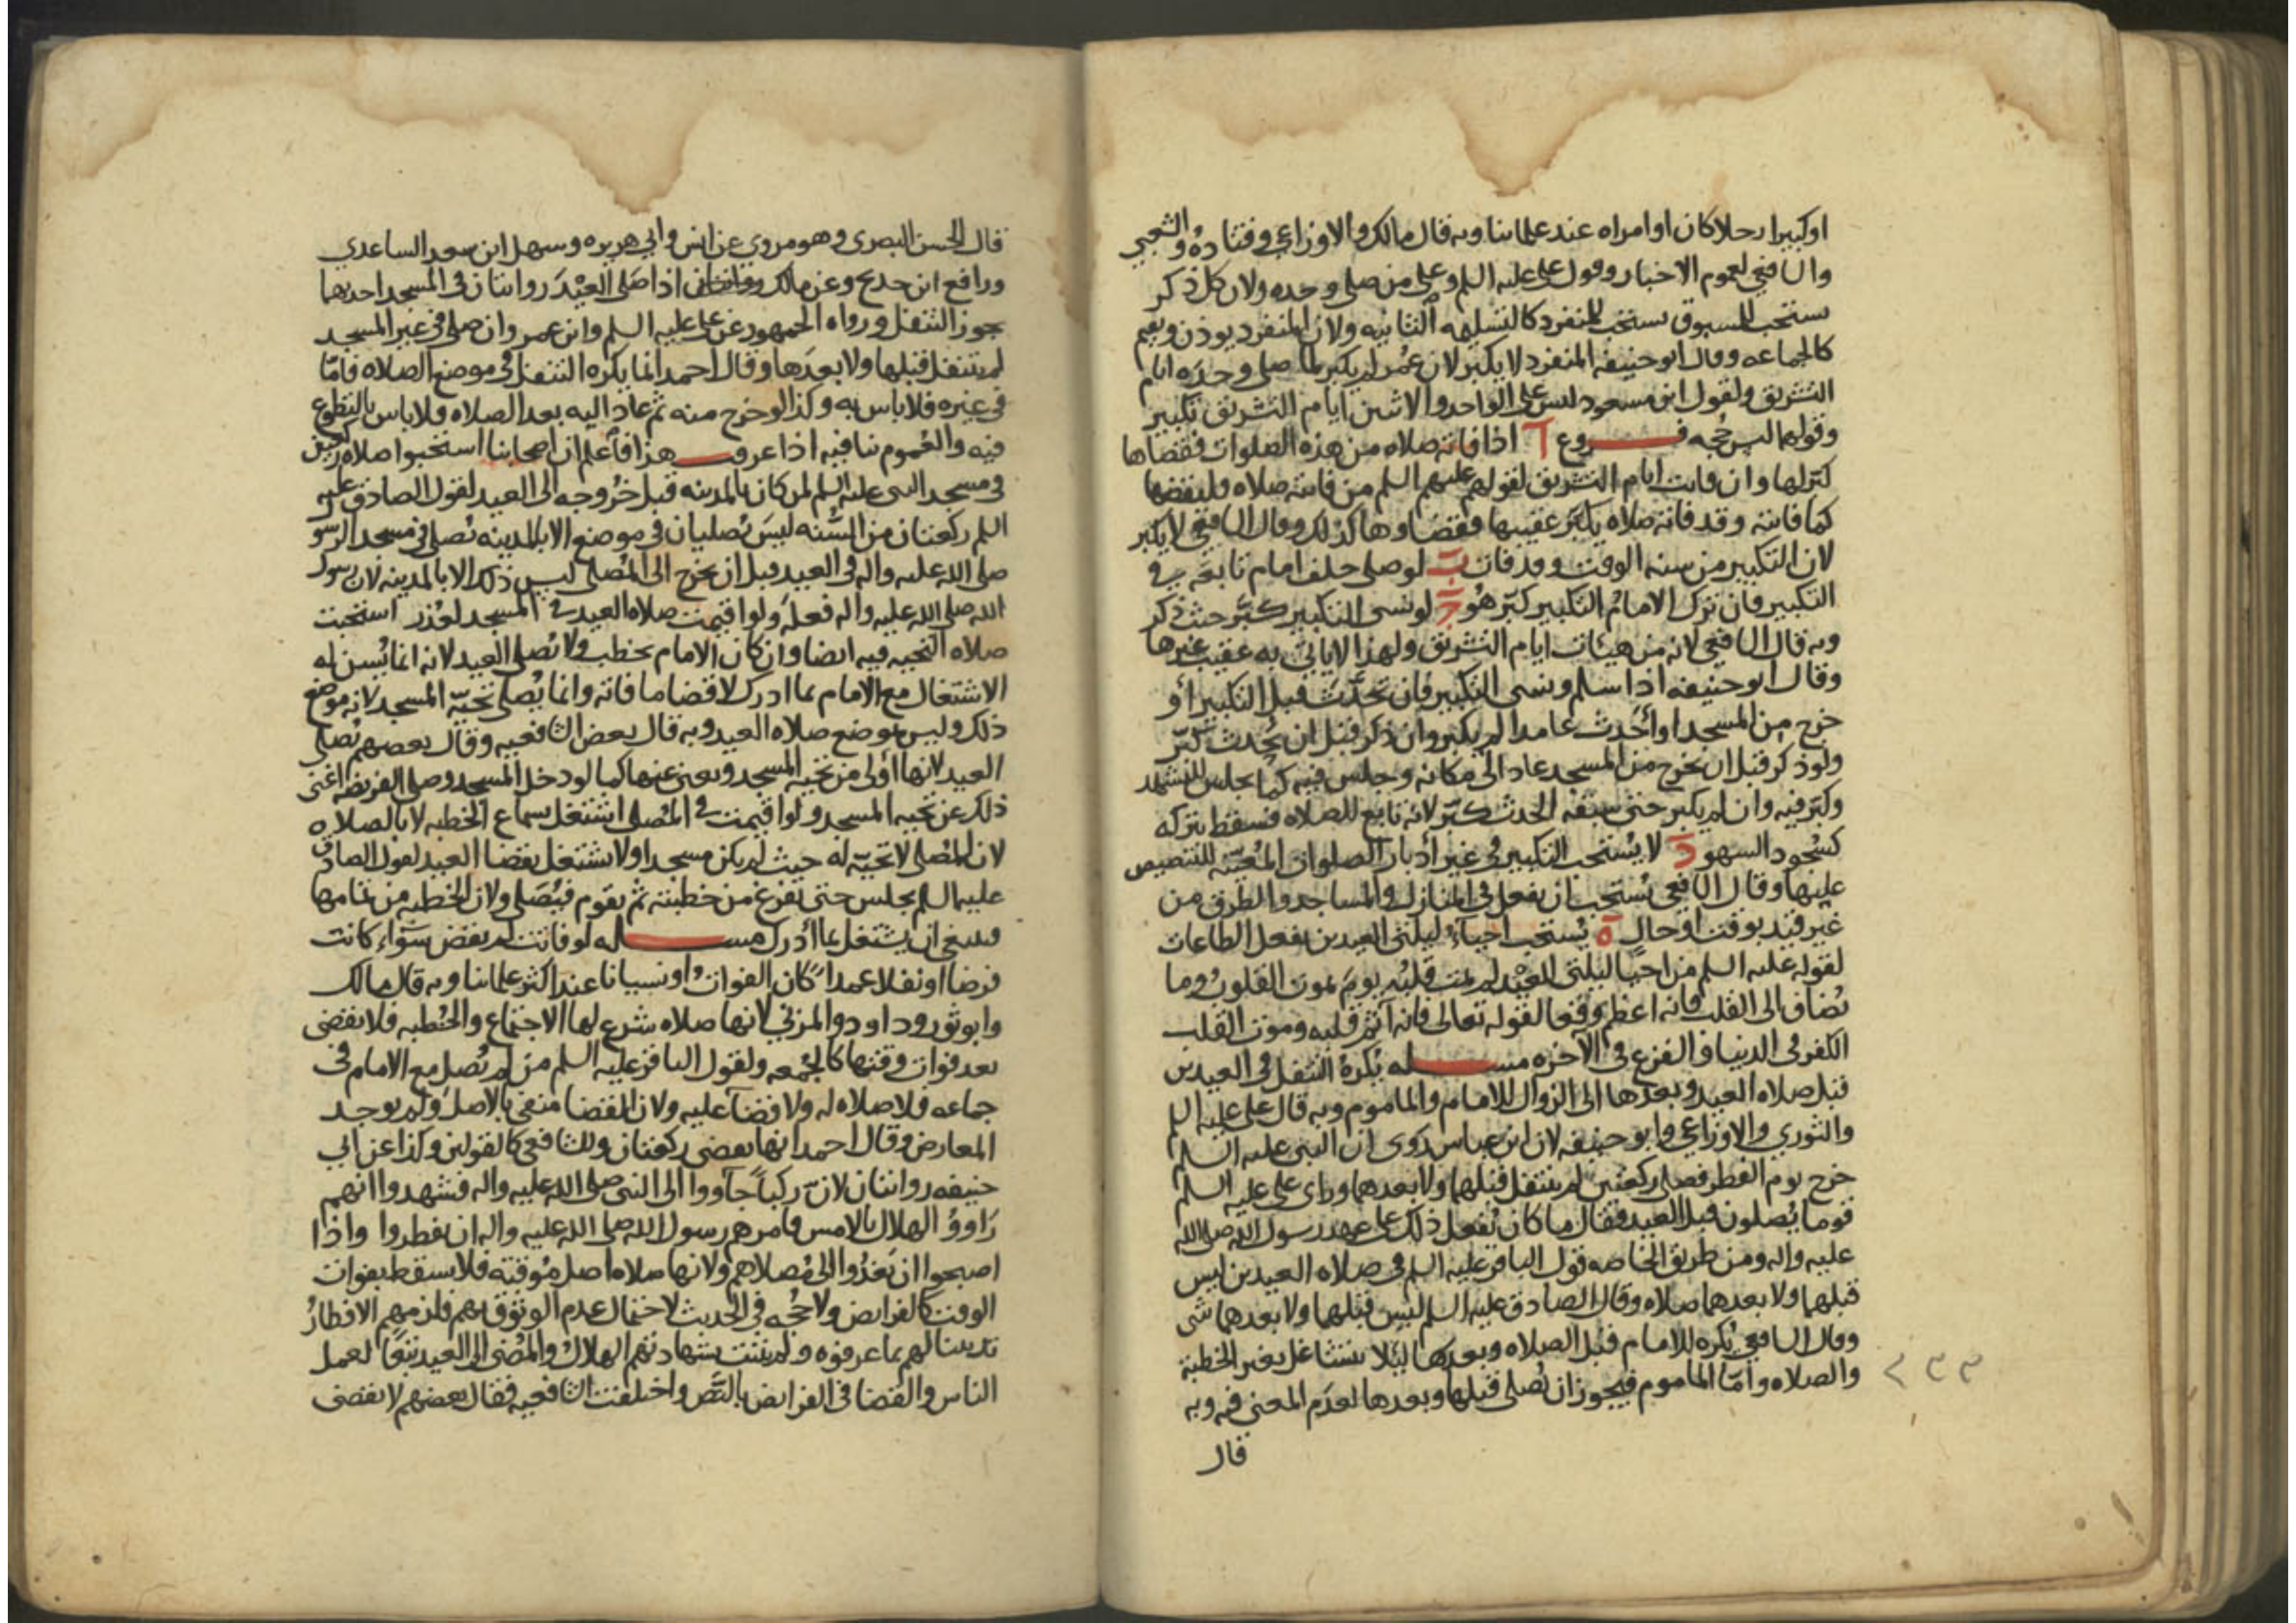 او كبيرا رجلا كان او امراه عند علمائنا وبه قال مالك والاوزاعي وقتاده والشعبي
والشافعي لعموم الاخبار وقول علي عليه السلم وعلى من صلى وحده ولان كل ذكر
يستحب للمسبوق يستحب للمنفرد كالتسليمه الثانيه ولان المنفرد يوذن ويقيم
كالجماعه وقال ابو حنيفه المنفرد لا يكبر لان عمر لم يكبر لما صلى وحده ايام
التشريق ولقول ابن مسعود ليس على الواحد والاثنين ايام التشريق تكبير
وقولهما ليس حجه فـــروع آ اذا فاته صلاه من هذه الصلوات فقضاها
كبر لها وان فاتت ايام التشريق لقولهم عليهم السلم من فاتته صلاه فليقضها
كما فاتته وقد فاته صلاه يكبر عقيبها فقضاوها كذلك وقال الشافعي لا يكبر
لان التكبير من سنه الوقت وقد فات ب لو صلى خلف امام تابعه في
التكبير فان ترك الامام التكبير كبر هو ج لو نسى التكبير كبر حيث ذكر
وبه قال الشافعي لانه من هيئات ايام التشريق ولهذا لا ياتي به عقيب غيرها
وقال ابو حنيفه اذا سلم ونسى التكبير فان تحدث قبل التكبير او
خرج من المسجد او احدث عامدا لم يكبر وان ذكر قبل ان يحدث كبر
ولو ذكر قبل ان يخرج من المسجد عاد الى مكانه وجلس فيه كما يجلس للتشهد
وكبر فيه وان لم يكبر حتى سبقه الحدث كبر لانه تابع للصلاه فسقط بتركه
كسجود السهو د لا يستحب التكبير في غير أدبار الصلوات المعينه للتنصيص
عليها وقال الشافعي يستحب ان يفعل في المنازل والمساجد والطرق من
غير قيد بوقت او حال ه يستحب احياء ليلتي العيدين بفعل الطاعات
لقوله عليه السلم من احيا ليلتي العيد لم يمت قلبه يوم تموت القلوب وما
يضاف الى القلب فانه اعظم وقعا لقوله تعالى فانه آثم قلبه وموت القلب
الكفر في الدنيا والفزع في الآخره مســـله يكره التنفل في العيدين
قبل صلاه العيد وبعدها الى الزوال للامام والماموم وبه قال علي عليه السلم
والثوري والاوزاعي وابو حنيفه لان ابن عباس روى ان النبي عليه السلم
خرج يوم الفطر فصلى ركعتين لم يتنفل قبلهما ولا بعدهما وراى علي عليه السلم
قوما يصلون قبل العيد فقال ما كان يفعل ذلك على عهد رسول الله صلى الله
عليه واله ومن طريق الخاصه قول الباقر عليه السلم في صلاه العيدين ليس
قبلهما ولا بعدهما صلاه وقال الصادق عليه السلم ليس قبلهما ولا بعدهما شى
وقال الشافعي يكره للامام قبل الصلاه وبعدها ليلا يتشاغل بغير الخطبة
والصلاه وامّا الماموم فيجوز ان يصلى قبلها وبعدها لعدم المعنى فيه وبه
قال
٢٣٣
قال الحسن البصرى وهو مروي عن انس وابي هريره وسهل ابن سعد الساعدي
ورافع ابن خديج وعن مالك اذا صلى العيد روايتان في المسجد احديهما
جوز التنفل ورواه الجمهور عن علي عليه السلم وابن عمر وان صلى في غير المسجد
لم يتنفل قبلها ولا بعدها وقال احمد انما يكره التنفل في موضع الصلاه فامّا
في غيره فلا باس به وكذا لو خرج منه ثم عاد اليه بعد الصلاه فلا باس بالتطوع
فيه والعموم ينافيه اذا عرفـــت هذا فاعلم ان اصحابنا استحبوا صلاه ركعتين
في مسجد النبى عليه السلم لمن كان بالمدينه قبل خروجه الى العيد لقول الصادق عليه
السلم ركعتان من السنه ليس تصليان في موضع الا بالمدينه تصلى في مسجد الرسول
صلى الله عليه واله في العيد قبل ان يخرج الى المصلى ليس ذلك الا بالمدينه لان رسول
الله صلى الله عليه واله فعله ولو اقيمت صلاه العيد في المسجد لعذر استحبت
صلاه التحيه فيه ايضا وان كان الامام يخطب ولا تصلى العيد لانه انما يسن له
الاشتغال مع الامام بما ادرك لا قضا ما فاته وانما يصلي تحيّه المسجد لانه موضع
ذلك وليس موضع صلاه العيد وبه قال بعض الشافعيه وقال بعضهم يصلى
العيد لانها اولى من تحيه المسجد ويغنى عنها كما لو دخل المسجد وصلى الفريضه اغنى
ذلك عن تحيه المسجد ولو اقيمت في المصلى اشتغل بسماع الخطبه لا بالصلاه
لان المصلى لا تحيّه له حيث لم يكن مسجدا ولا يشتغل بقضا العيد لقول الصادق
عليه السلم يجلس حتى يفرغ من خطبته ثم يقوم فيصلى ولان الخطبه من تمامها
فينبغي ان يشتغل بما أدرك مســـله لو فاتت لم يقض سواء كانت
فرضا او نفلا عمدا كان الفوات او نسيانا عند اكثر علمائنا وبه قال مالك
وابو ثور وداود والمزني لانها صلاه شرع لها الاجتماع والخطبه فلا يقضى
بعد فوات وقتها كالجمعه ولقول الباقر عليه السلم من لم يصل مع الامام في
جماعه فلا صلاه له ولا قضآ عليه ولان القضا منفي بالاصل ولم يوجد
المعارض وقال احمد انها يقضى ركعتان وللشافعي كالقولين وكذا عن ابي
حنيفه روايتان لان ركبا جآووا الى النبى صلى الله عليه واله فشهدوا انهم
رَاووُ الهلال بالامس فامرهم رسول الله صلى الله عليه واله ان يفطروا واذا
اصبحوا ان يغدُوا الى مُصلاهم ولانها صلاه اصل مُوقتة فلا يسقط بفوات
الوقت كالفرايض ولا حجه في الحديث لاحتمال عدم الوثوق بهم فلزمهم الافطارُ
تديينا لهم بما عرفوه ولم يثبت بشهادتهم الهلال والمضى الى العيد تبعًا لعمل
الناس والقضا في الفرايض بالنَّص واختلفت الشافعيه فقال بعضهم لا يقضى